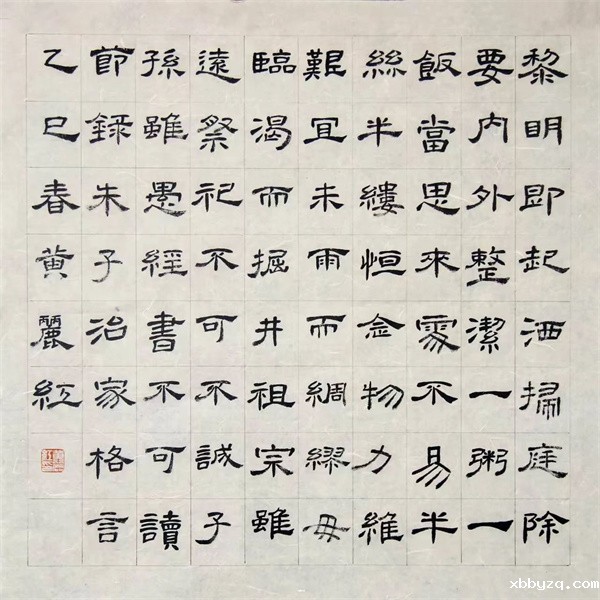 黎明即起洒掃庭除
要内外整潔一粥一
飯當思來處不易半
絲半縷恒念物力維
艱宜未雨而綢繆毋
臨渴而掘井祖宗雖
遠祭祀不可不誠子
孫雖愚經書不可讀
節錄朱子治家格言
乙巳春黄麗紅
xbbyzq.com